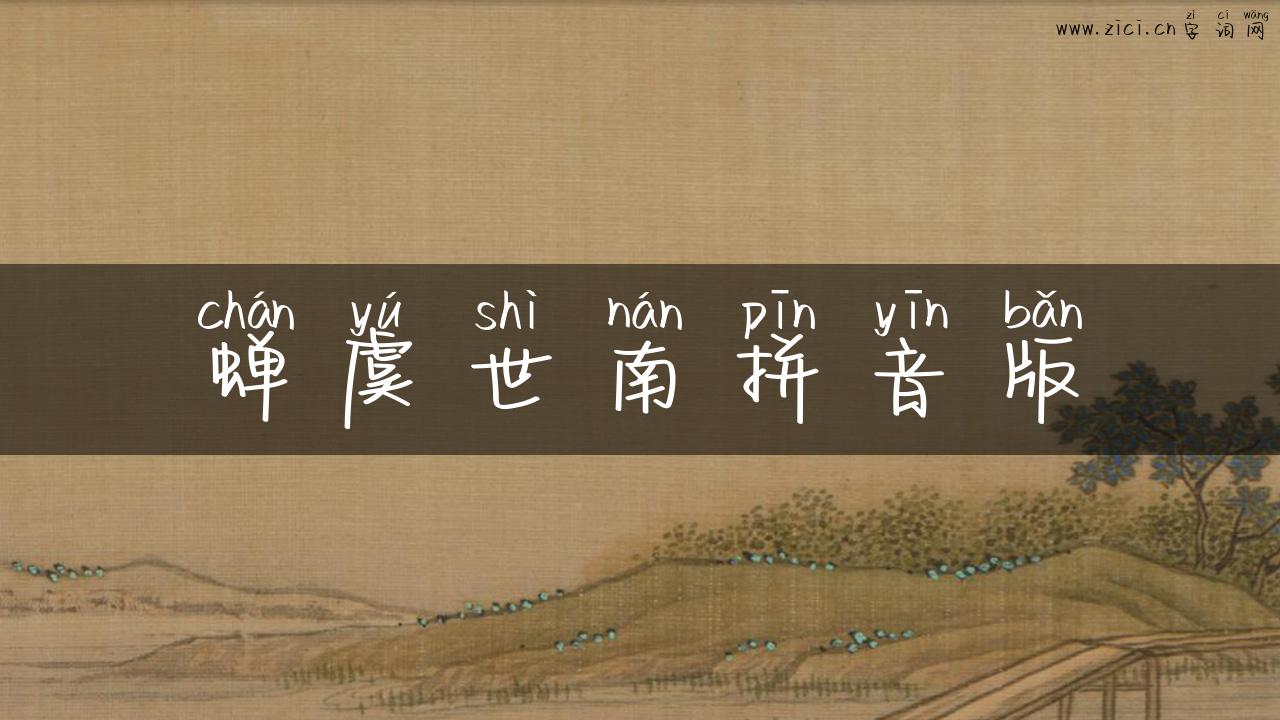 zì cí wǎng
www.zici.cn 字词网
chán yú shì nán pīn yīn bǎn
蝉虞世南拼音版